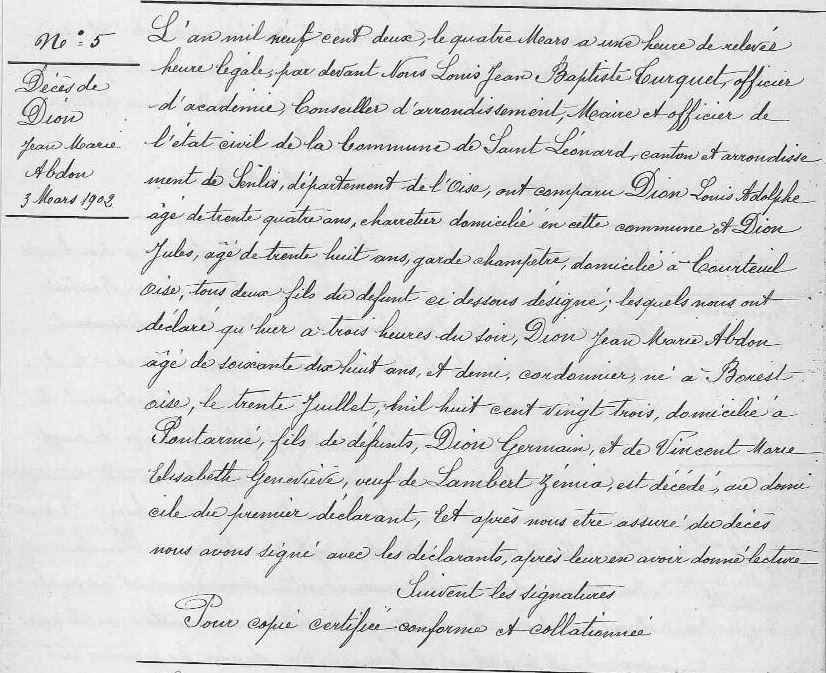 N.º 5
Décès de
Dion
Jean Marie
Abdon
3 Mars 1902
L'an mil neuf cent deux, le quatre Mars a une heure de relevée
heure légale, par devant Nous Louis Jean Baptiste Turquet, officier
d'académie, Conseiller d'arrondissement, Maire et officier de
l'état civil de la Commune de Saint Léonard, canton et arrondisse
ment de Senlis, département de l'Oise, ont comparu Dion Louis Adolphe
âgé de trente quatre ans, charretier domicilié en cette commune et Dion
Jules, âgé de trente huit ans, garde champêtre, domicilié à Courteuil
Oise, tous deux fils du défunt ci dessous désigné; lesquels nous ont
déclaré qu'hier a trois heures du soir, Dion Jean Marie Abdon
âgé de soixante dix huit ans, et demi, cordonnier, né à Borest
oise, le trente Juillet, mil huit cent vingt trois, domicilié à
Pontarmé, fils de défunts, Dion Germain, et de Vincent Marie
Elisabeth Geneviève, veuf de Lambert Zémia, est décédé, au domi
cile du premier déclarant, Et après nous être assuré du décès
nous avons signé avec les déclarants, après leur en avoir donné lecture
Suivent les signatures
Pour copie certifiée conforme et collationnée